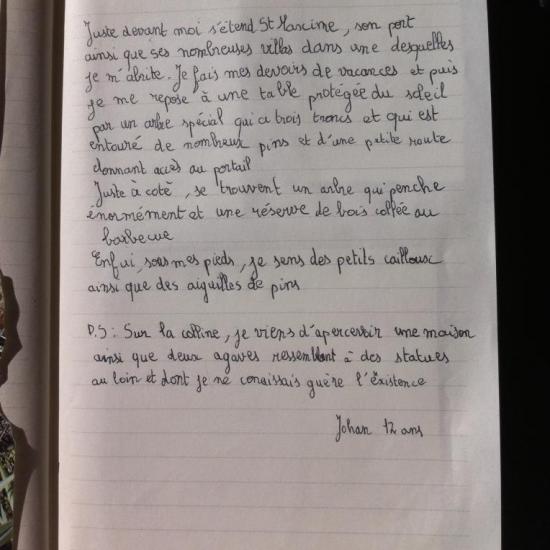 Juste devant moi s'étend St Maxime, son port
ainsi que ses nombreuses villas dans une desquelles
je m'abrite. Je fais mes devoirs de vacances et puis
je me repose à une table protégée du soleil
par un arbre spécial qui a trois troncs et qui est
entouré de nombreux pins et d'une petite route
donnant accès au portail
Juste à coté, se trouvent un arbre qui penche
énormément et une réserve de bois collée au
barbecue
Enfui, sous mes pieds, je sens des petits cailloux
ainsi que des aiguilles de pins
P.S : Sur la colline, je viens d'apercevoir une maison
ainsi que deux agaves ressemblant à des statues
au loin et dont je ne conaissais guère l'existence
Johan 12 ans